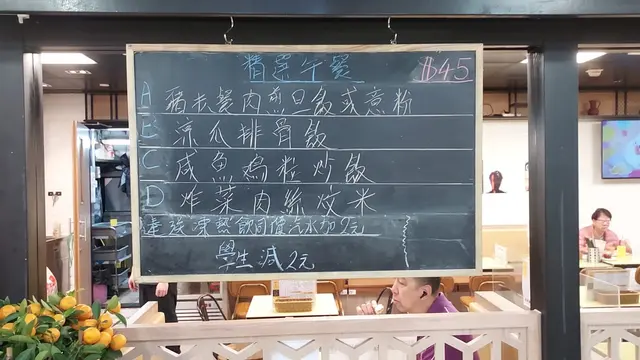 精選午餐 $45
A 豬扒餐肉煎旦飯或意粉
B 涼瓜排骨飯
C 咸魚鸡粒炒飯
D 炸菜肉絲炆米
凍熱飲同價汽水加2元
學生減2元